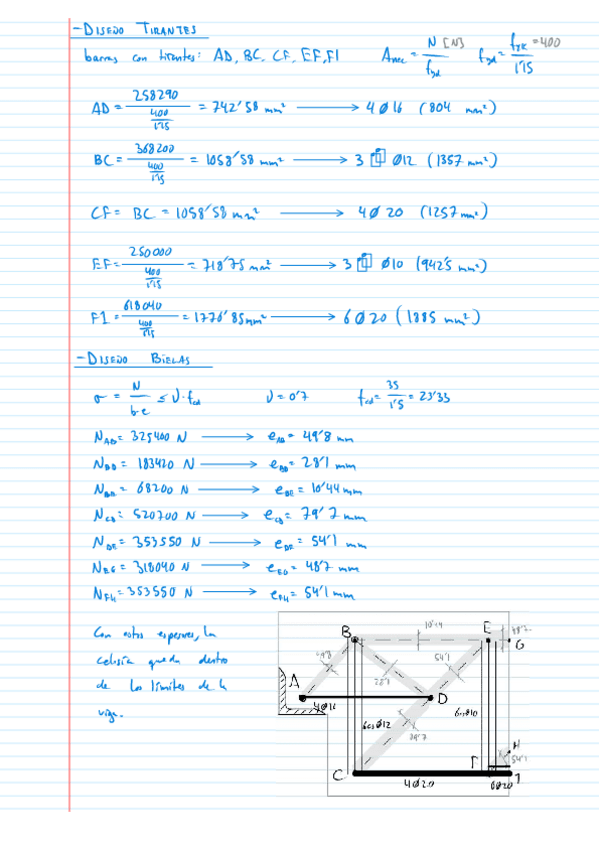 - DISEÑO TIRANTES
barras con tirantes: AD, BC, CF, EF, FI   A_nec = N [N] / f_yd   f_yd = f_yk / 1'15 = 400
AD = 258290 / (400 / 1'15) = 742'58 mm² → 4 Ø 16 (804 mm²)
BC = 368200 / (400 / 1'15) = 1058'58 mm² → 3 Ø12 (1357 mm²)
CF = BC = 1058'58 mm² → 4 Ø 20 (1257 mm²)
EF = 250000 / (400 / 1'15) = 718'75 mm² → 3 Ø10 (942'5 mm²)
FI = 618040 / (400 / 1'15) = 1776'85 mm² → 6 Ø 20 (1885 mm²)
- DISEÑO BIELAS
σ = N / b·e ≤ ν·f_cd   ν = 0'7   f_cd = 35 / 1'5 = 23'33
N_AB = 325400 N → e_AB = 49'8 mm
N_BD = 183420 N → e_BD = 28'1 mm
N_BE = 68200 N → e_BE = 10'44 mm
N_CD = 520700 N → e_CD = 79'7 mm
N_DE = 353550 N → e_DE = 54'1 mm
N_EG = 318040 N → e_EG = 48'7 mm
N_FH = 353550 N → e_FH = 54'1 mm
Con estos espesores, la
celosía queda dentro
de los límites de la
viga.
10'44
B
E
48'7
G
49'8
28'1
54'1
A
D
4Ø16
6cØ12
6cØ10
79'7
H
54'1
F
C
I
4Ø20
6Ø20